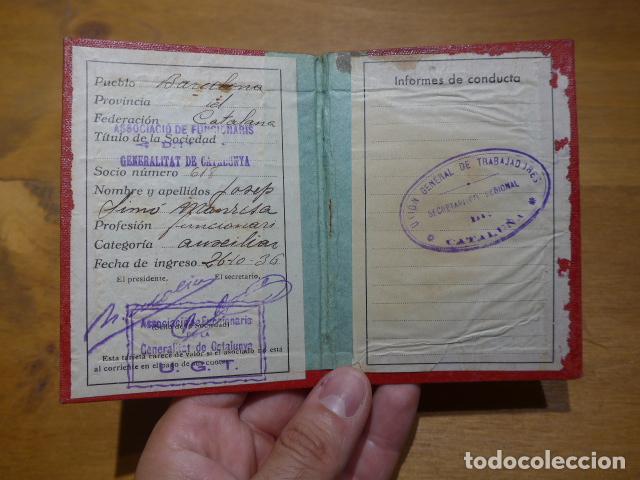 Pueblo Barcelona
Provincia id
Federación Catalana
ASSOCIACIÓ DE FUNCIONARIS
Título de la Sociedad
DE LA
GENERALITAT DE CATALUNYA
Socio número 618
Nombre y apellidos Josep
Simó Manresa
Profesión funcionari
Categoría auxiliar
Fecha de ingreso 26-10-36
El presidente. El secretario,
Associació de Funcionaris
(Sello de la Sociedad)
DE LA
Generalitat de Catalunya
Esta tarjeta carece de valor si el asociado no está
al corriente en el pago de sus cuotas
U. G. T.
Informes de conducta
UNIÓN GENERAL DE TRABAJADORES
SECRETARIADO REGIONAL
DE
CATALUÑA
todocoleccion.net